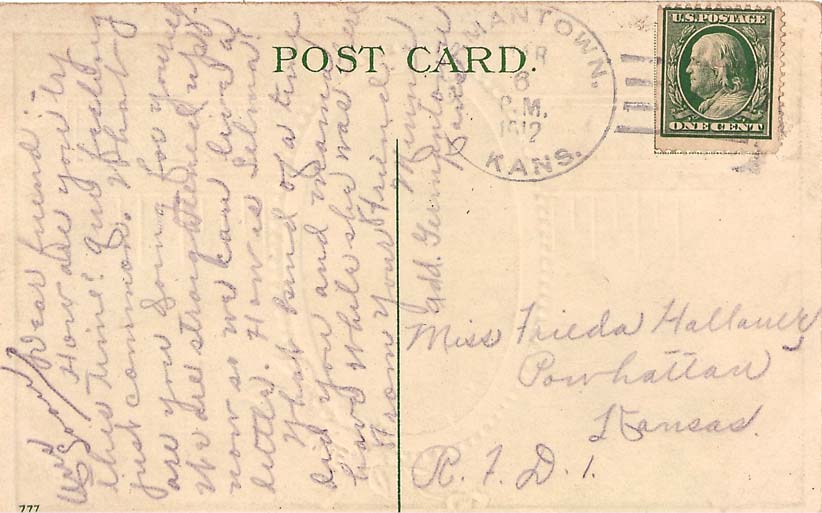 POST CARD.
U.S. POSTAGE
ONE CENT
MANTOWN,
6
P.M.
1912
KANS.
Dear friend:
How are you by
this time? Am feeling
just common. What
are you doing for yourself
We are straightened up
now so we can live a
little. How is Selma?
What kind of a time
did you and Mama
have while she was here
From your friend
Add. Germantown
Kans
Miss Frieda Hallauer
Powhattan
Kansas.
R. F. D. 1.
777